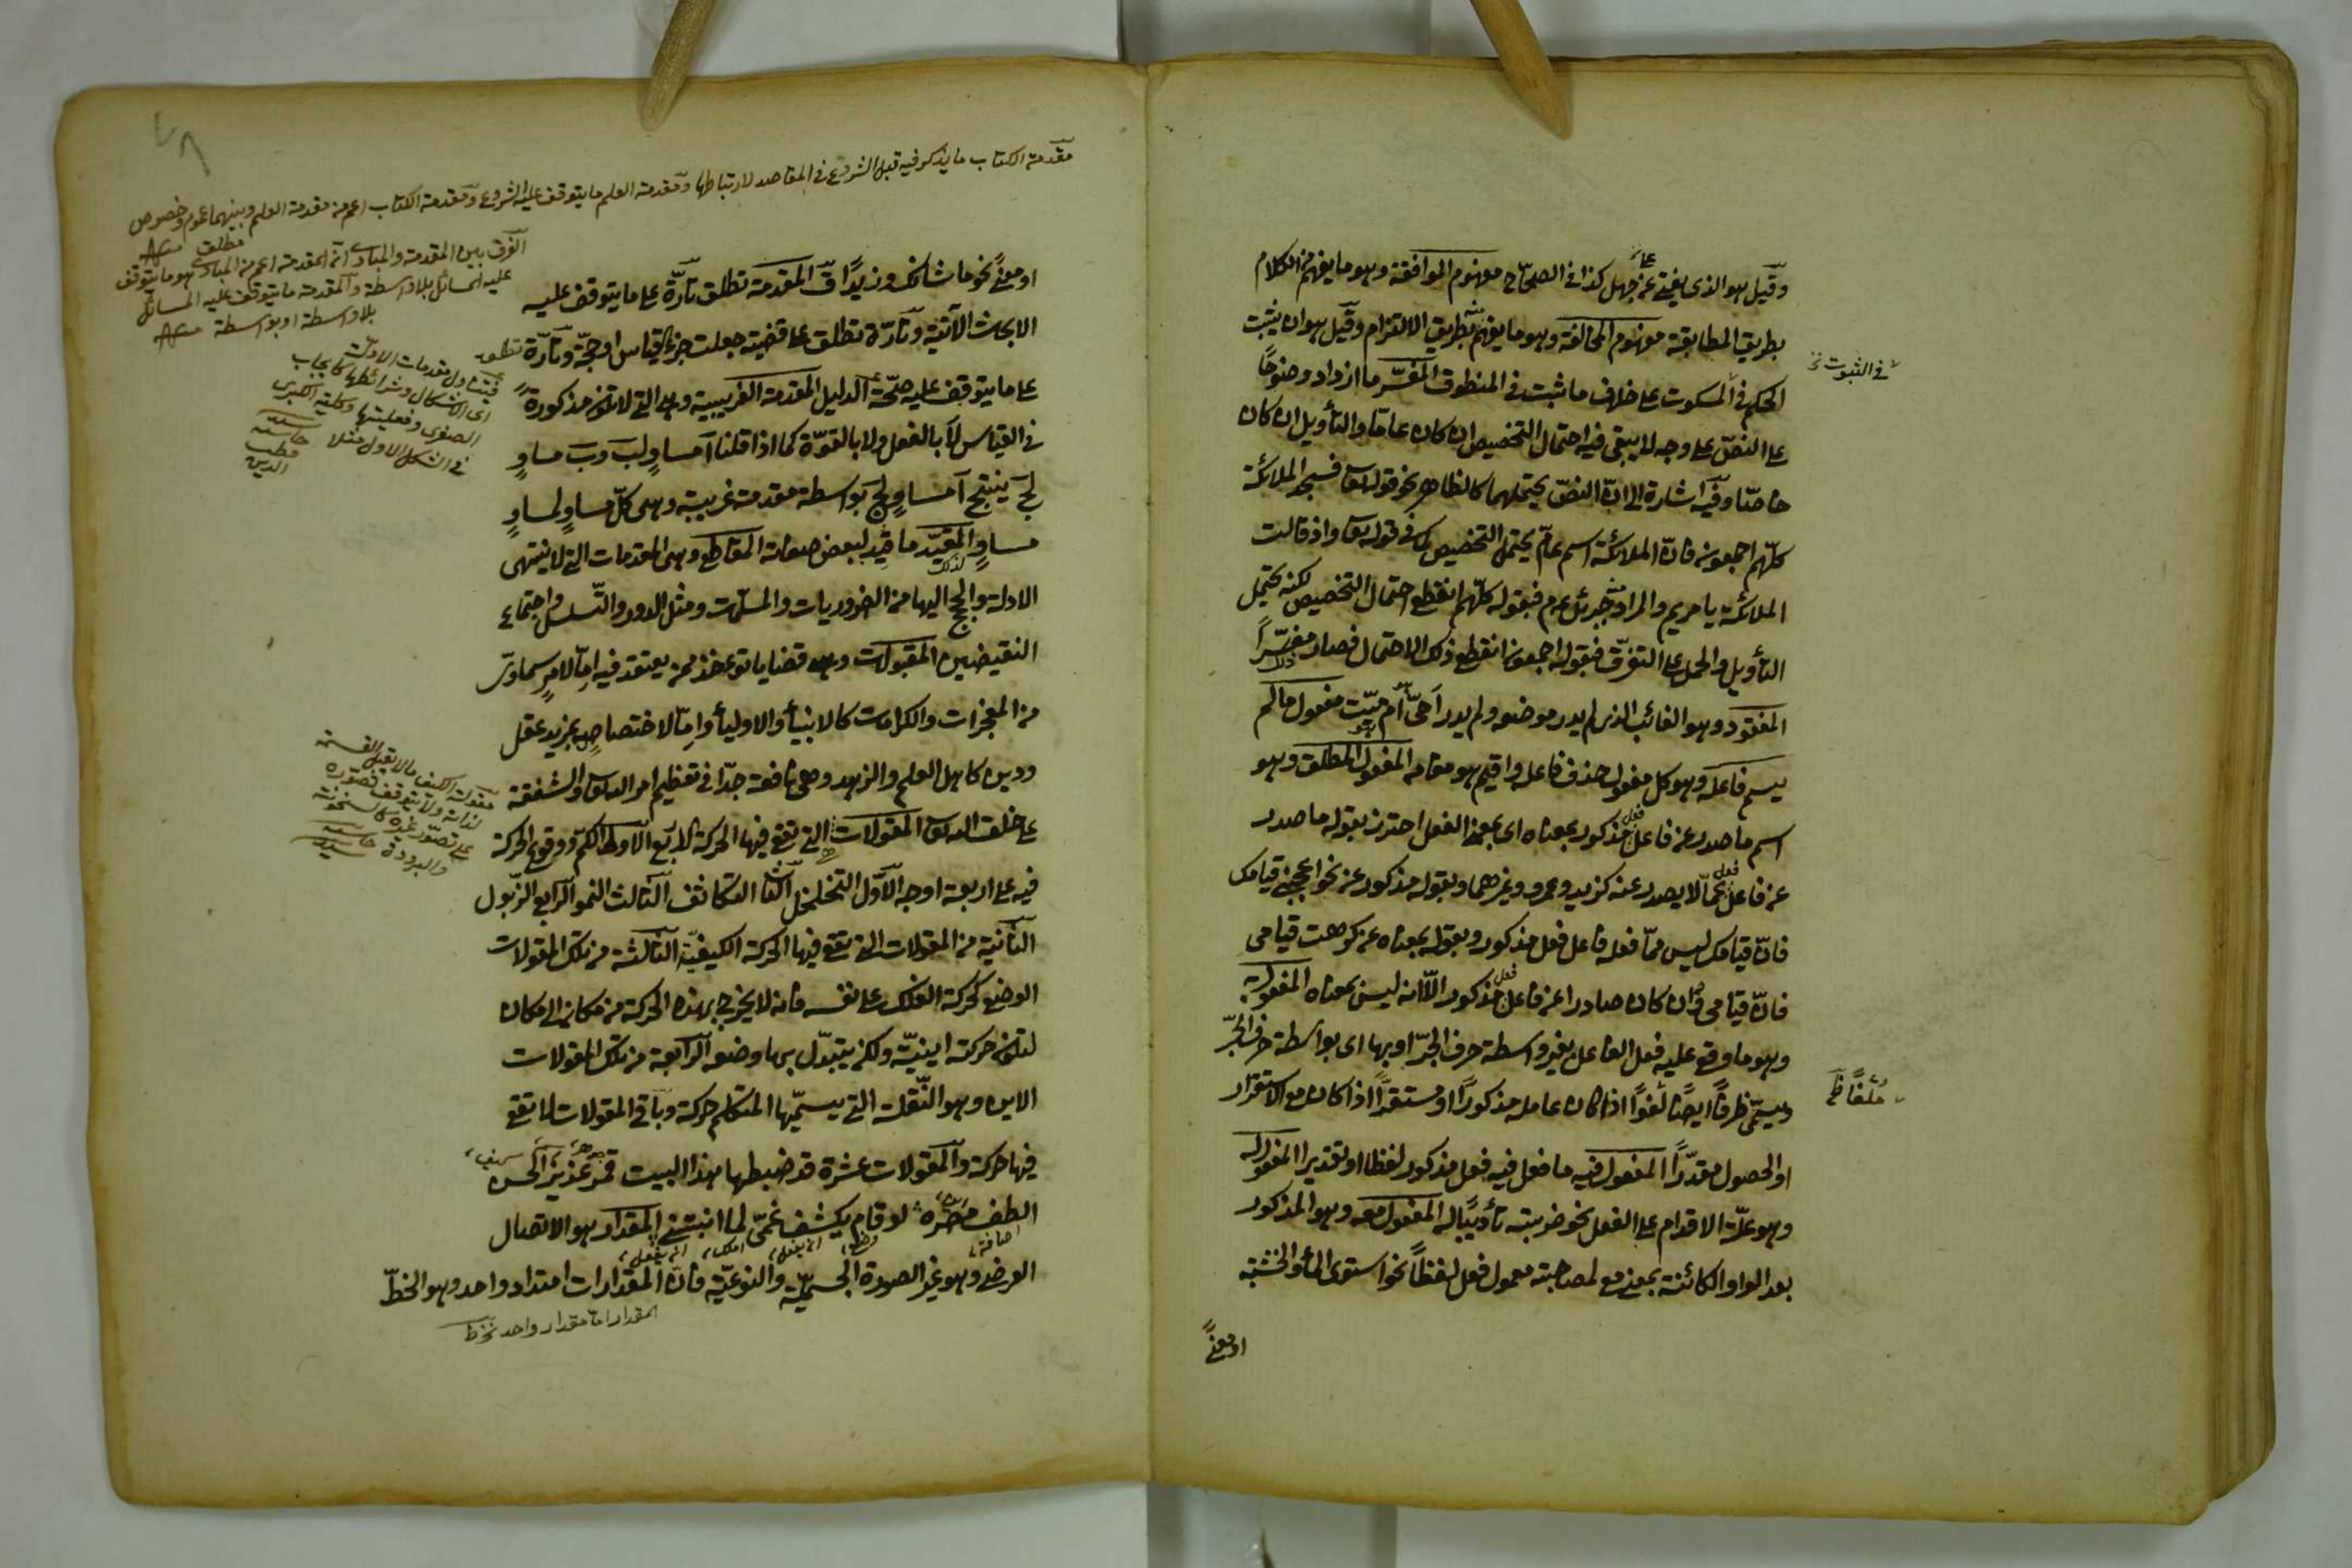 وقيل هو الذى يفتى عن جهل كذا فى الصحاح مفهوم الموافقة وهو ما يفهم من الكلام
بطريق المطابقة مفهوم المخالفة وهو ما يفهم منه بطريق الالتزام وقيل هو ان يثبت
الحكم فى المسكوت على خلاف ما ثبت فى المنطوق المفسّر ما ازداد وضوحًا
على النصّ على وجه لا يبقى فيه احتمال التخصيص ان كان عامّا والتأويل ان كان
خاصّا وفيه اشارة الى انّ النصّ يحتملهما كالظاهر نحو قوله تعا فسجد الملائكة
كلّهم اجمعون فانّ الملائكة اسم عامّ يحتمل التخصيص كما فى قوله تعا واذ قالت
الملائكة يا مريم والمراد جبرئل عم فبقوله كلّهم انقطع احتمال التخصيص لكنه يحتمل
التأويل والحمل على التفرّق فبقوله اجمعون انقطع ذلك الاحتمال فصار مفسّرًا
المفقود وهو الغائب الذى لم يدر موضعه ولم يدر أحىّ هو أم ميّت مفعول ما لم
يسم فاعله وهو كل مفعول حذف فاعله واقيم هو مقامه المفعول المطلق وهو
اسم ما صدر عن فاعل فعل مذكور بمعناه اى بمعنى الفعل احترز بقوله ما صدر
عن فاعل فعل عمّا لا يصدر عنه كزيد وعمرو وغيرهما وبقوله مذكور عن نحو اعجبنى قيامك
فانّ قيامك ليس ممّا فعله فاعل فعل مذكور وبقوله بمعناه عن كرهت قيامى
فانّ قيامى وان كان صادرا عن فاعل فعل مذكور الّا انه ليس بمعناه المفعول به
وهو ما وقع عليه فعل الفاعل بغير واسطة حرف الجرّ او بها اى بواسطة حرف الجرّ
ويسمّى ظرفًا ايضًا لغوًا اذا كان عامله مذكورًا او مستقرًّا اذا كان مع الاستقرار
او الحصول مقدّرًا المفعول فيه ما فعل فيه فعل مذكور لفظا او تقديرا المفعول له
وهو علّة الاقدام على الفعل نحو ضربته تأديبًا له المفعول معه وهو المذكور
بعد الواو الكائنة بمعنى مع لمصاحبته معمول فعل لفظًا نحو استوى الماء والخشبة
او معنًى
فى الثبوت
ملغًا
مقدمة الكتاب ما يذكر فيه قبل الشروع فى المقاصد لارتباطها ومقدمة العلم ما يتوقف عليه الشروع ومقدمة الكتاب اعم من مقدمة العلم وبينهما عموم وخصوص
مطلق
الفرق بين المقدمة والمبادى انّ المقدمة اعم من المبادى هو ما يتوقف
عليه المسائل بلا واسطة والمقدمة ما يتوقف عليه المسائل
بلا واسطة او بواسطة
او معنًى نحو ما شأنك وزيدًا المقدمة تطلق تارةً على ما يتوقف عليه
الابحاث الآتية وتارة تطلق على قضية جعلت جزء القياس او حجّة وتارة تطلق
على ما يتوقف عليه صحّة الدليل المقدمة الغريبية وهى التى لا تكون مذكورة
فى القياس لا بالفعل ولا بالقوّة كما اذا قلنا آ مساوٍ لب وب مساوٍ
لج ينتج آ مساوٍ لج بواسطة مقدمة غريبية وهى كلّ مساوٍ لمساوٍ
مساوٍ المقيّد ما قيد لبعض صفاته المقاطع وهى المقدمات التى لا ينتهى
الادلة والحجج اليها من الضروريات والمسلّمات ومثل الدور والتسلسل واجتماع
النقيضين المقبولات وهى قضايا تؤخذ ممن يعتقد فيه امّا لامرٍ سماوىّ
من المعجزات والكرامات كالانبياء والاولياء وامّا لاختصاصٍ بمزيد عقل
ودين كاهل العلم والزهد وهى نافعة جدّا فى تعظيم امر الله تعا والشفقة
على خلق الله تعا المقولات التى تقع فيها الحركة الاربع الاولى الكمّ ووقوع الحركة
فيه على اربعة اوجه الاوّل التخلخل الثانى التكاثف الثالث النمو الرابع الذبول
الثانية من المقولات التى تقع فيها الحركة الكيفيّة الثالثة من تلك المقولات
الوضع كحركة الفلك على نفسه فانه لا يخرج بهذه الحركة من مكان الى مكان
لتكون حركته اينيّة ولكن يتبدّل بها وضعه الرابعة من تلك المقولات
الاين وهو النّقلة التى يسمّيها المتكلم حركة وباقى المقولات لا تقع
فيها حركة والمقولات عشرة قد ضبطها هذا البيت قمر غزير الحسن
الطف مصره لو قام يكشف غمّى لما انثنى المقدار هو الاتصال
العرضى وهو غير الصورة الجسميّة والنوعيّة فانّ المقدارات امتداد واحد وهو الخطّ
فيتناول مقدمات الادلّة
اى الاشكال وشرائطها كايجاب
الصغرى وفعليتها وكلية الكبرى
فى الشكل الاول مثلا
قطب
الدين
مقولة الكيف ما لا يقبل القسمة
لذاته ولا يتوقف تصوّره
على تصوّر غيره كالسخونة
والبرودة
جوهر
اضافة
وضع
ان يفعل
ملك
ان ينفعل
المقدار اما مقدار واحد